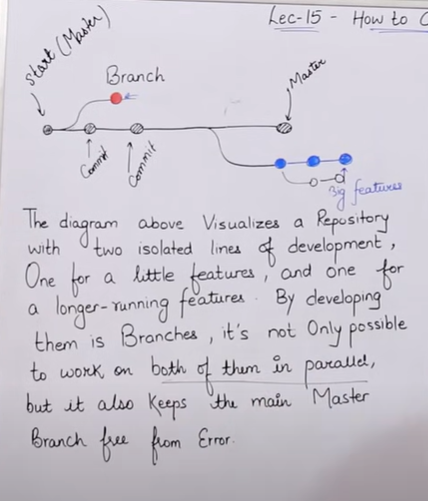 Lec-15 - How to
Start (Master)
Branch
Master
Commit
Commit
Big features
The diagram above Visualizes a Repository
with two isolated lines of development,
One for a little features, and one for
a longer-running features. By developing
them is Branches, it's not Only possible
to work on both of them in parallel,
but it also Keeps the main Master
Branch free from Error.